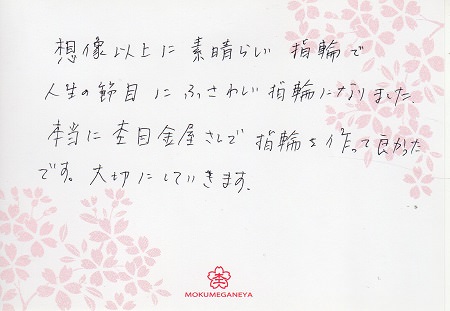 想像以上に素晴らしい指輪で
人生の節目にふさわしい指輪になりました。
本当に杢目金屋さんで指輪を作って良かった
です。大切にしていきます。
杢
MOKUMEGANEYA